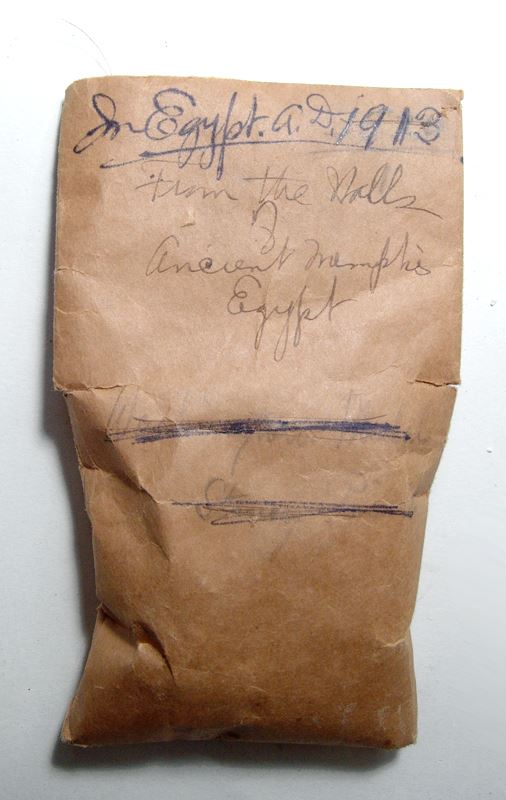 In Egypt. A.D. 1913
From the Walls
of
Ancient Memphis
Egypt